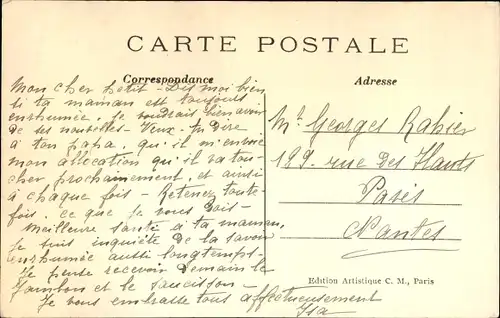 CARTE POSTALE
Correspondance
Mon cher petit - Dis moi bien
si ta maman est toujours
enrhumée. Je voudrais bien avoir
de ses nouvelles - Veux-tu dire
à ton papa, qu'il m'envoie
mon allocation qu'il va tou-
cher prochainement, et ainsi
à chaque fois - Retenez toute-
fois, ce que je vous dois -
Meilleure santé à ta maman,
je suis inquiète de la savoir
enrhumée aussi longtemps.
Je pense recevoir demain le
jambon et le saucisson -
Je vous embrasse tous affectueusement
Isa
Adresse
Mr Georges Rahier
189 rue des Hauts
Pavés
Nantes
Edition Artistique C. M., Paris